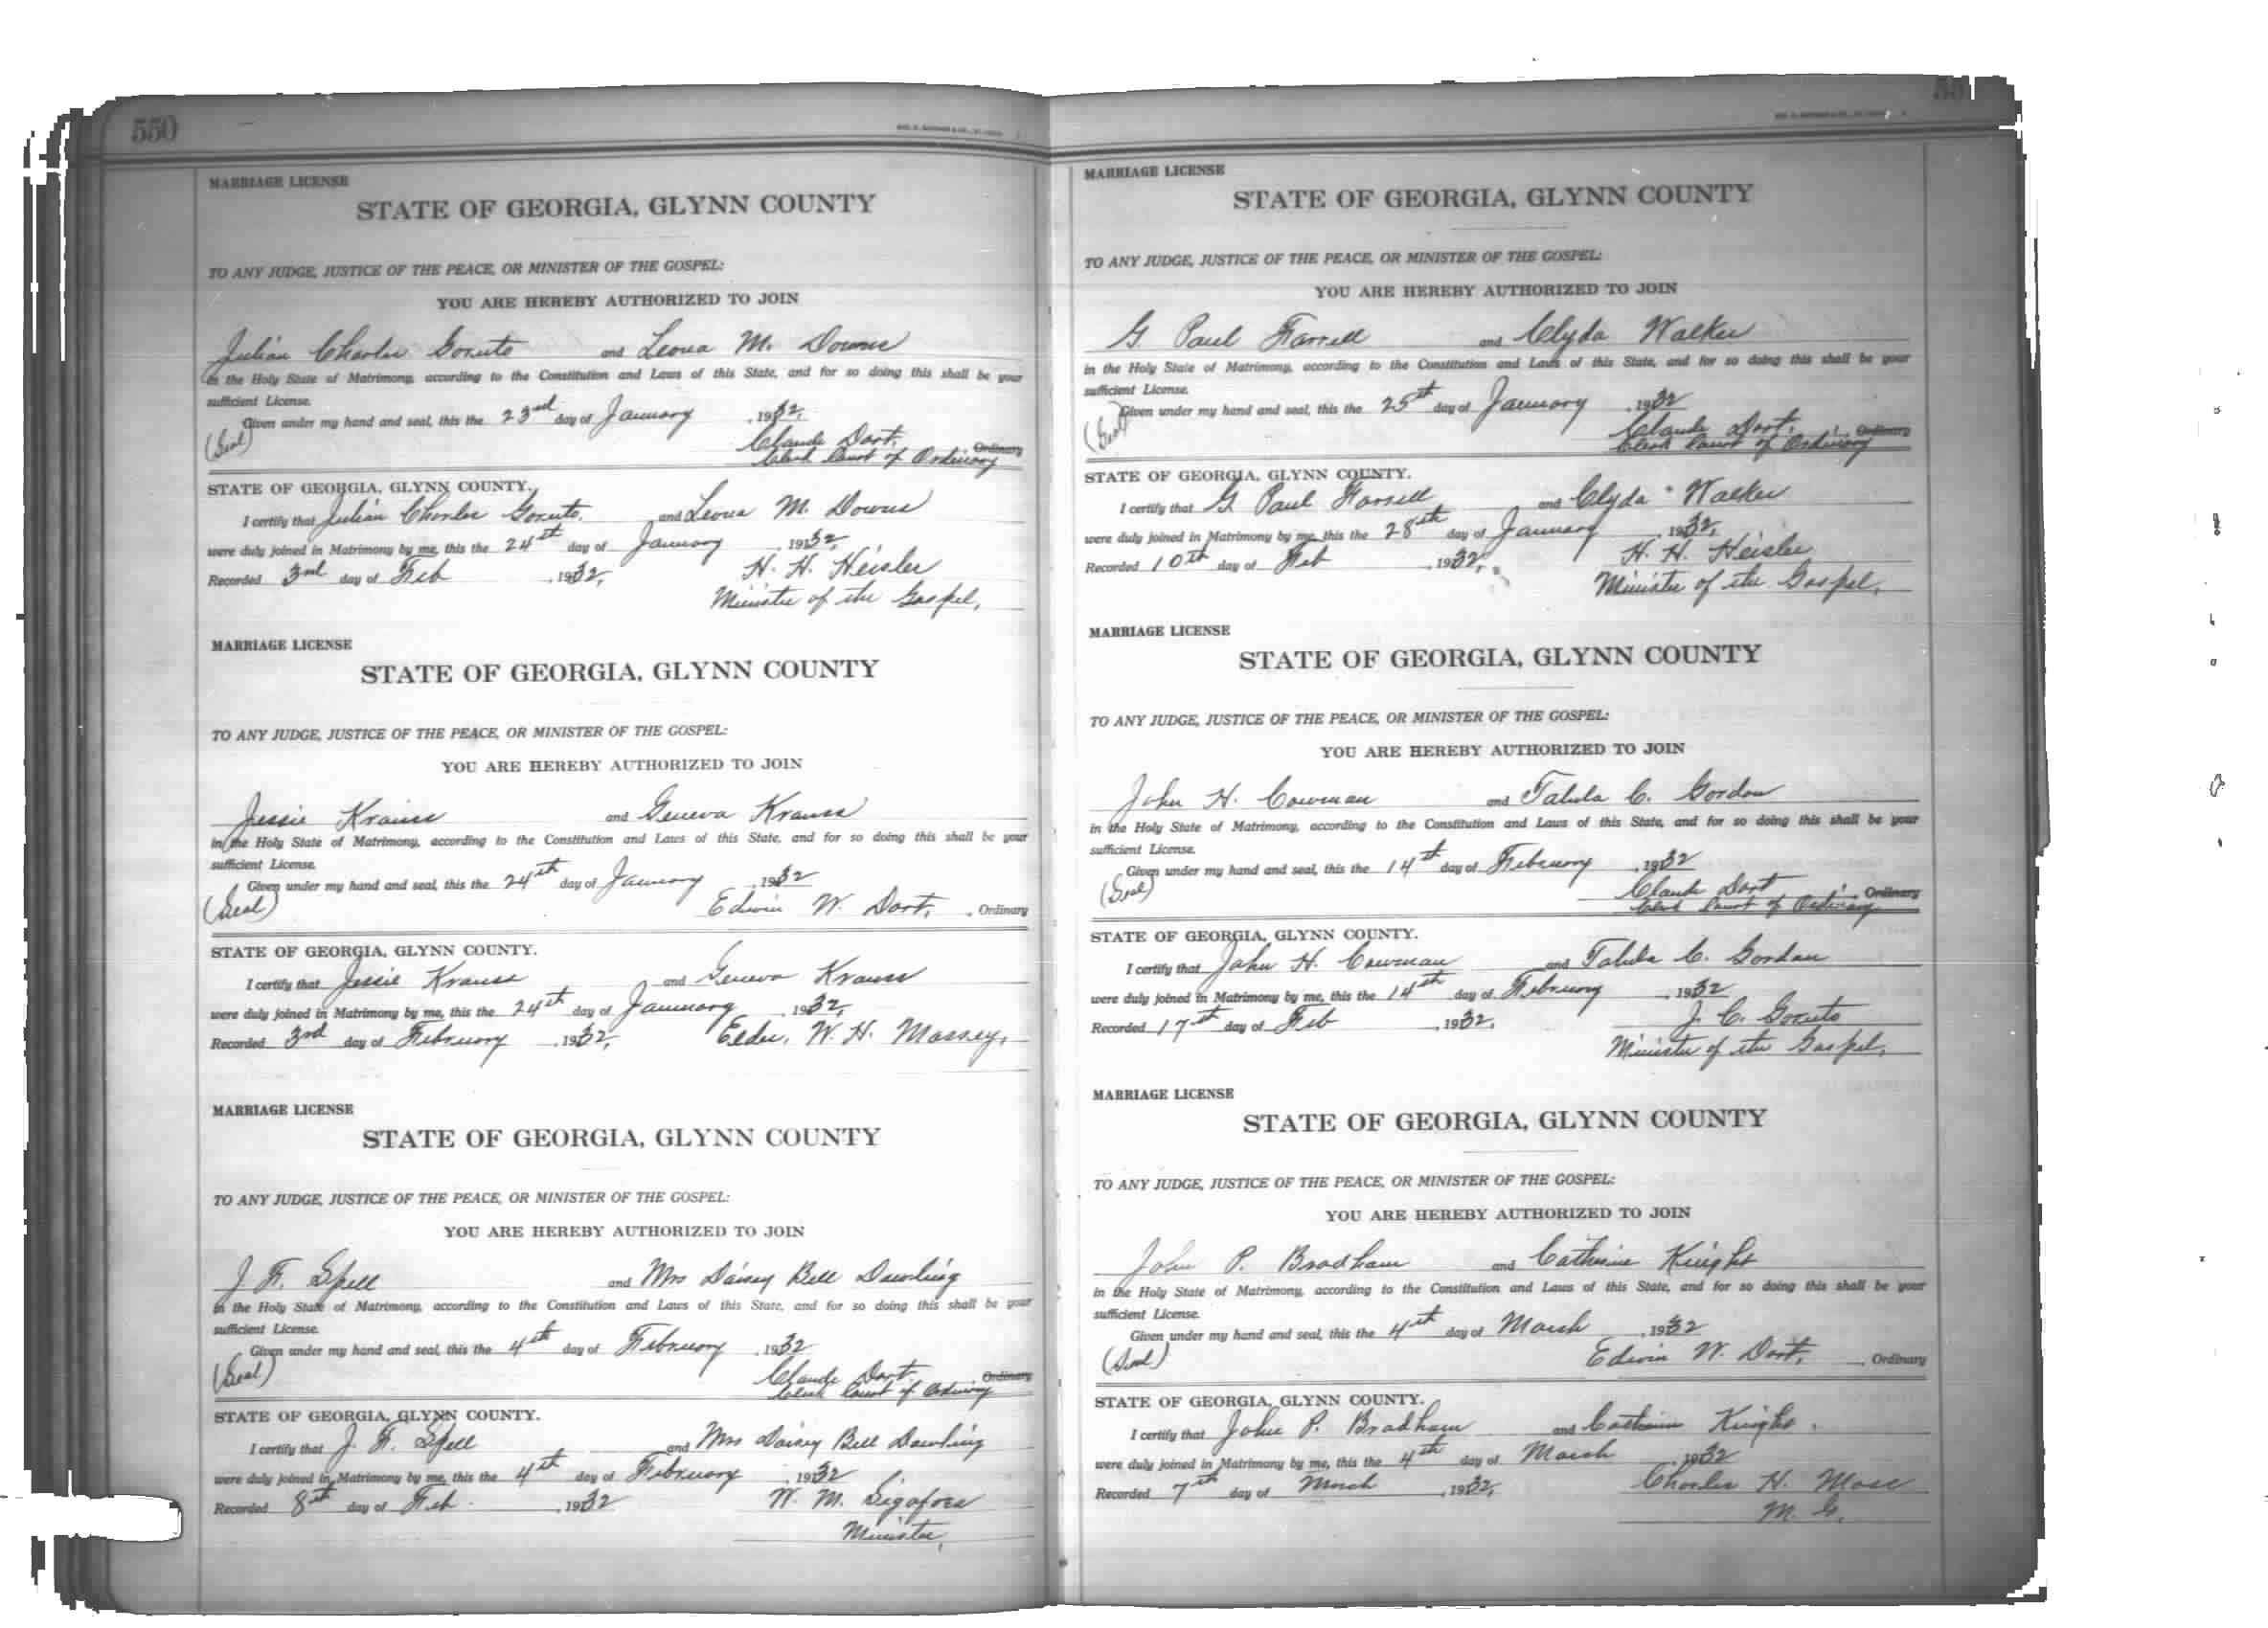 550
MARRIAGE LICENSE
STATE OF GEORGIA, GLYNN COUNTY
TO ANY JUDGE, JUSTICE OF THE PEACE, OR MINISTER OF THE GOSPEL:
YOU ARE HEREBY AUTHORIZED TO JOIN
Julian Charles Goruto and Leona M. Downs
in the Holy State of Matrimony, according to the Constitution and Laws of this State, and for so doing this shall be your
sufficient License.
Given under my hand and seal, this the 23rd day of January, 1932,
(Seal) Claude Dart, Ordinary
Clerk Court of Ordinary
STATE OF GEORGIA, GLYNN COUNTY.
I certify that Julian Charles Goruto and Leona M. Downs
were duly joined in Matrimony by me, this the 24th day of January, 1932,
Recorded 3rd day of Feb, 1932, H. H. Heisler
Minister of the Gospel,
MARRIAGE LICENSE
STATE OF GEORGIA, GLYNN COUNTY
TO ANY JUDGE, JUSTICE OF THE PEACE, OR MINISTER OF THE GOSPEL:
YOU ARE HEREBY AUTHORIZED TO JOIN
Jessie Krauss and Geneva Krauss
in the Holy State of Matrimony, according to the Constitution and Laws of this State, and for so doing this shall be your
sufficient License.
Given under my hand and seal, this the 24th day of January, 1932
(Seal) Edwin W. Dart, Ordinary
STATE OF GEORGIA, GLYNN COUNTY.
I certify that Jessie Krauss and Geneva Krauss
were duly joined in Matrimony by me, this the 24th day of January, 1932,
Recorded 3rd day of February, 1932, Elder, W. H. Massey,
MARRIAGE LICENSE
STATE OF GEORGIA, GLYNN COUNTY
TO ANY JUDGE, JUSTICE OF THE PEACE, OR MINISTER OF THE GOSPEL:
YOU ARE HEREBY AUTHORIZED TO JOIN
J. F. Spell and Mrs Daisey Bell Dowling
in the Holy State of Matrimony, according to the Constitution and Laws of this State, and for so doing this shall be your
sufficient License.
Given under my hand and seal, this the 4th day of February, 1932
(Seal) Claude Dart Ordinary
Clerk Court of Ordinary
STATE OF GEORGIA, GLYNN COUNTY.
I certify that J. F. Spell and Mrs Daisey Bell Dowling
were duly joined in Matrimony by me, this the 4th day of February, 1932
Recorded 8th day of Feb., 1932 W. M. Sigafoos
Minister,
MARRIAGE LICENSE
STATE OF GEORGIA, GLYNN COUNTY
TO ANY JUDGE, JUSTICE OF THE PEACE, OR MINISTER OF THE GOSPEL:
YOU ARE HEREBY AUTHORIZED TO JOIN
G Paul Farrell and Clyda Walker
in the Holy State of Matrimony, according to the Constitution and Laws of this State, and for so doing this shall be your
sufficient License.
Given under my hand and seal, this the 25th day of January, 1932
(Seal) Claude Dart, Ordinary
Clerk Court of Ordinary
STATE OF GEORGIA, GLYNN COUNTY.
I certify that G Paul Farrell and Clyda Walker
were duly joined in Matrimony by me, this the 28th day of January, 1932,
Recorded 10th day of Feb, 1932, H. H. Heisler
Minister of the Gospel,
MARRIAGE LICENSE
STATE OF GEORGIA, GLYNN COUNTY
TO ANY JUDGE, JUSTICE OF THE PEACE, OR MINISTER OF THE GOSPEL:
YOU ARE HEREBY AUTHORIZED TO JOIN
John H. Cowman and Talula C. Gordon
in the Holy State of Matrimony, according to the Constitution and Laws of this State, and for so doing this shall be your
sufficient License.
Given under my hand and seal, this the 14th day of February, 1932
(Seal) Claude Dart Ordinary
Clerk Court of Ordinary
STATE OF GEORGIA, GLYNN COUNTY.
I certify that John H. Cowman and Talula C. Gordon
were duly joined in Matrimony by me, this the 14th day of February, 1932
Recorded 17th day of Feb, 1932, J. C. Goruto
Minister of the Gospel,
MARRIAGE LICENSE
STATE OF GEORGIA, GLYNN COUNTY
TO ANY JUDGE, JUSTICE OF THE PEACE, OR MINISTER OF THE GOSPEL:
YOU ARE HEREBY AUTHORIZED TO JOIN
John P. Bradham and Catherine Knight
in the Holy State of Matrimony, according to the Constitution and Laws of this State, and for so doing this shall be your
sufficient License.
Given under my hand and seal, this the 4th day of March, 1932
(Seal) Edwin W. Dart, Ordinary
STATE OF GEORGIA, GLYNN COUNTY.
I certify that John P. Bradham and Catherine Knight.
were duly joined in Matrimony by me, this the 4th day of March, 1932
Recorded 7th day of March, 1932, Charles H. Mose
M. G.